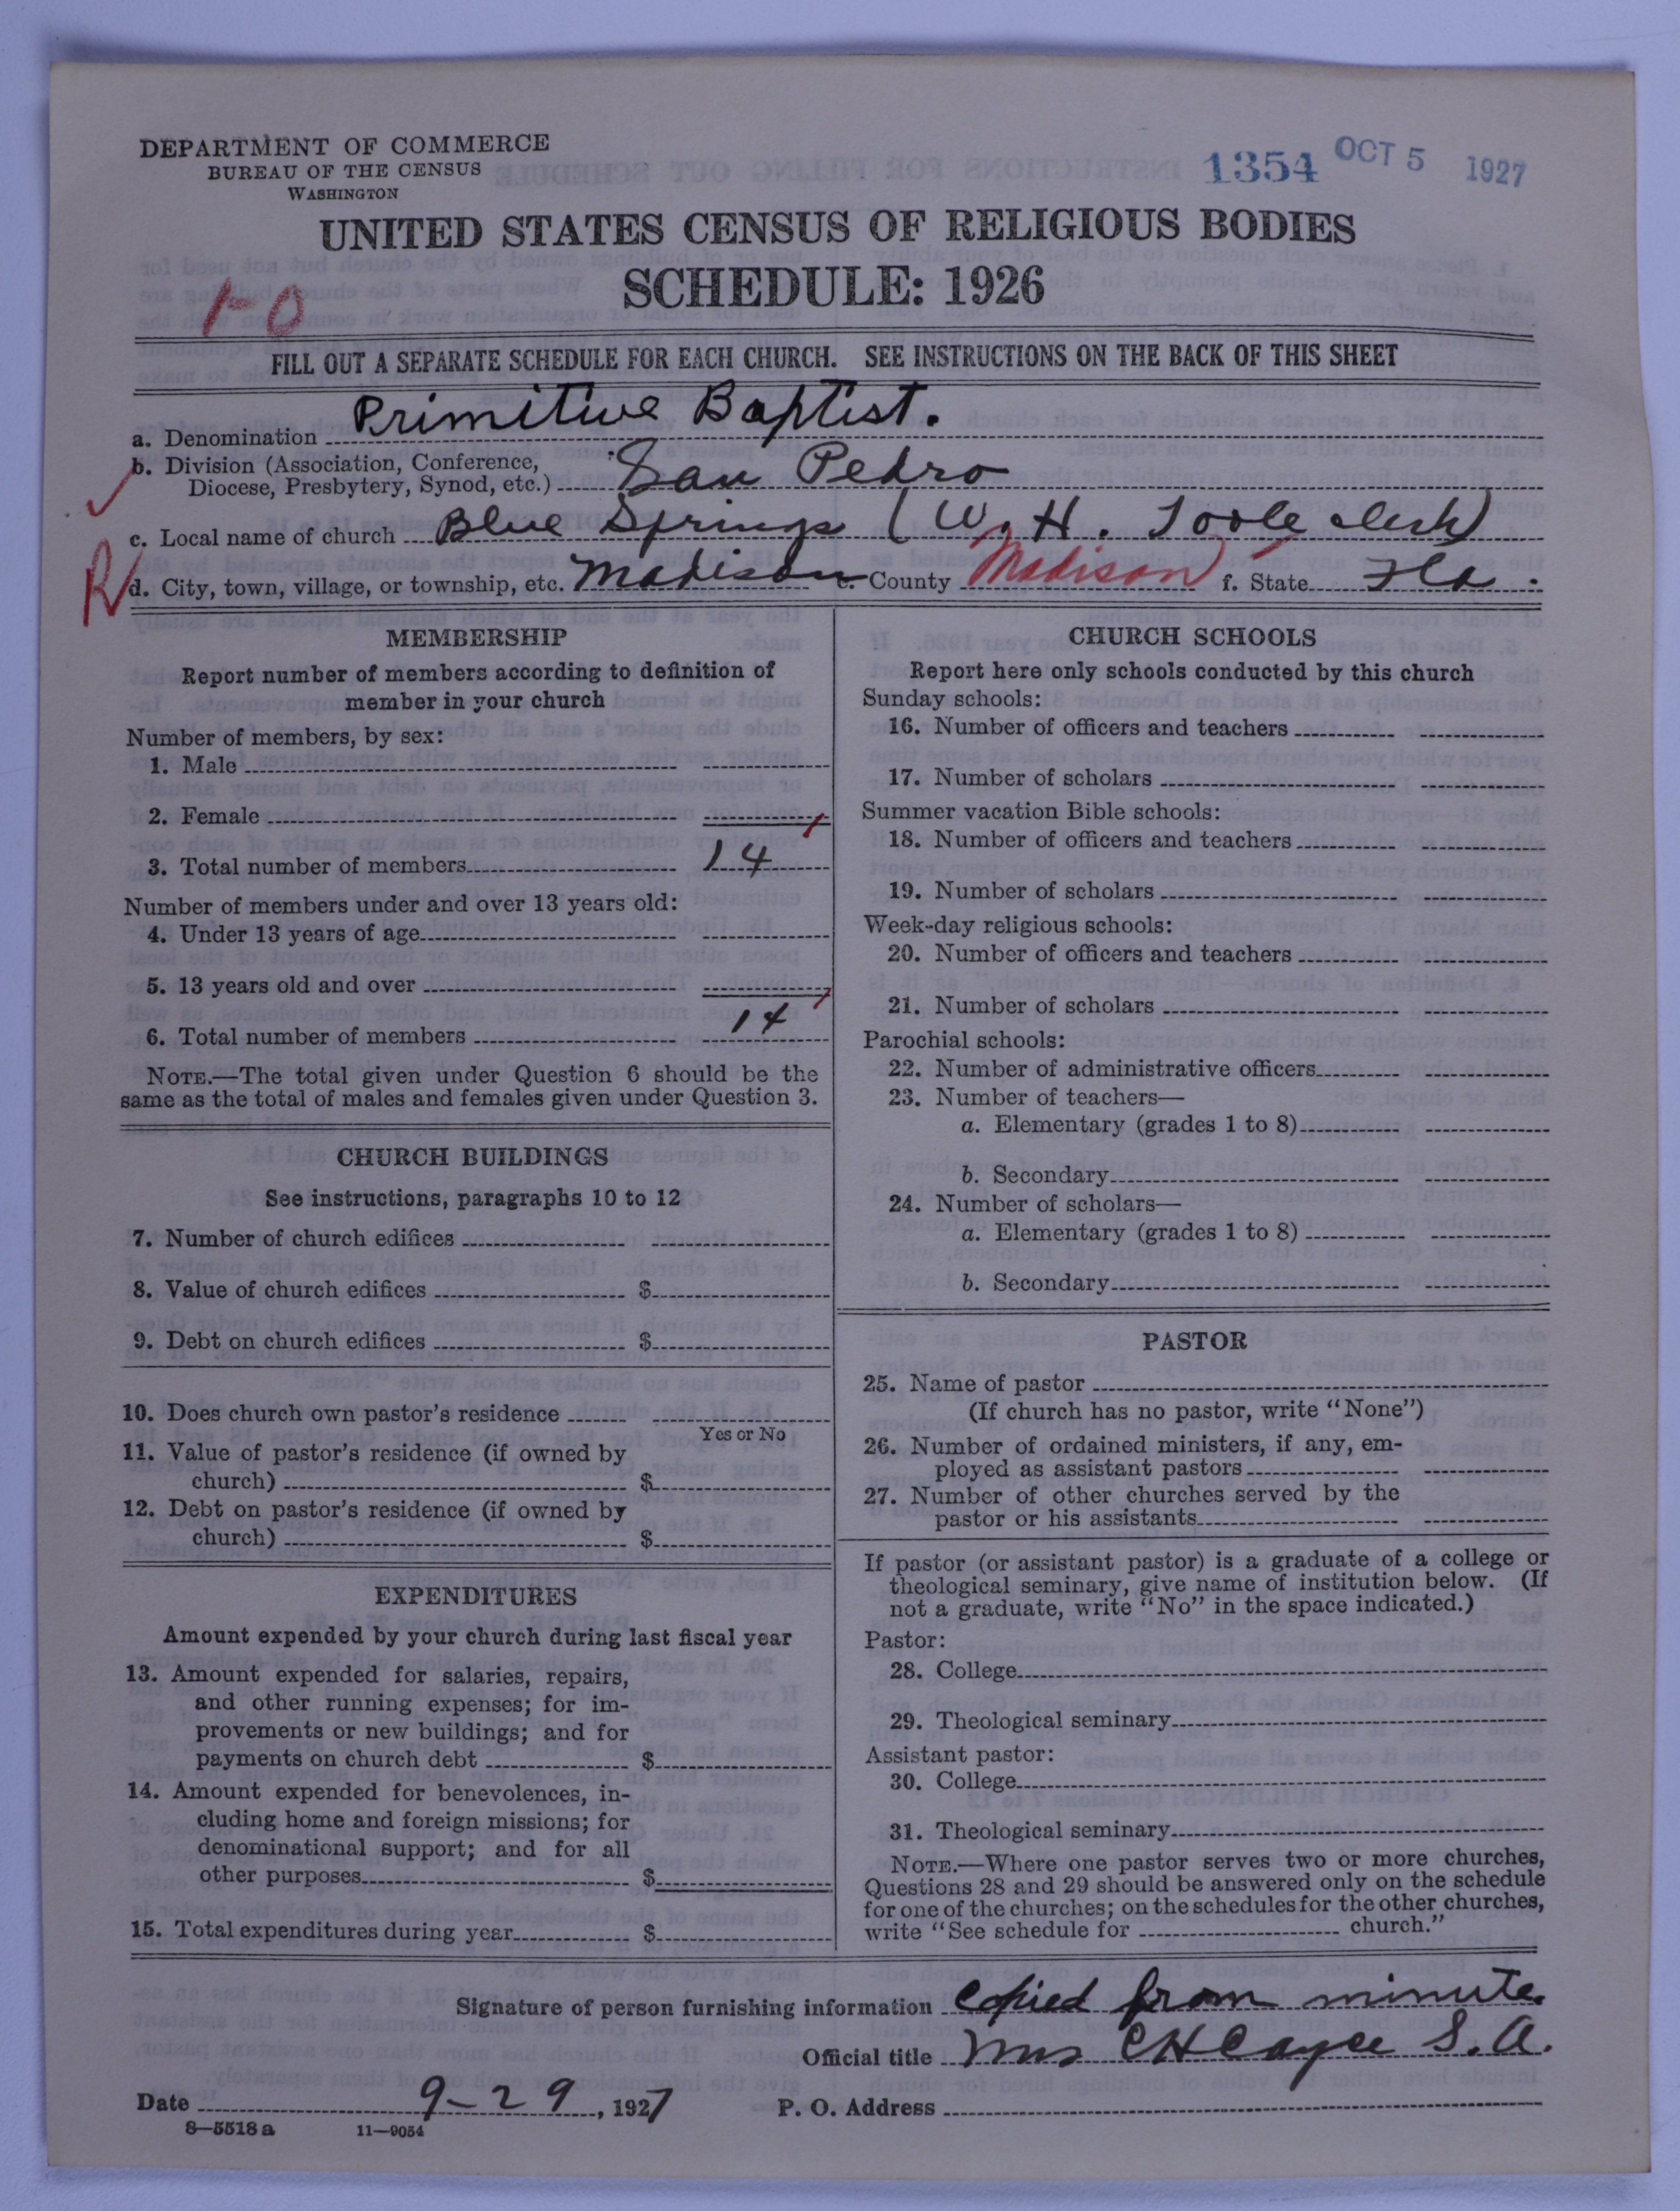 DEPARTMENT OF COMMERCE
BUREAU OF THE CENSUS
WASHINGTON
1354 OCT 5 1927
UNITED STATES CENSUS OF RELIGIOUS BODIES
SCHEDULE: 1926
1-0
FILL OUT A SEPARATE SCHEDULE FOR EACH CHURCH. SEE INSTRUCTIONS ON THE BACK OF THIS SHEET
a. Denomination Primitive Baptist.
b. Division (Association, Conference,
Diocese, Presbytery, Synod, etc.) San Pedro
c. Local name of church Blue Springs (W. H. Toole clerk)
R d. City, town, village, or township, etc. Madison e. County Madison f. State Fla.
MEMBERSHIP
Report number of members according to definition of
member in your church
Number of members, by sex:
1. Male
2. Female
3. Total number of members 14
Number of members under and over 13 years old:
4. Under 13 years of age
5. 13 years old and over
6. Total number of members 14
NOTE.—The total given under Question 6 should be the
same as the total of males and females given under Question 3.
CHURCH BUILDINGS
See instructions, paragraphs 10 to 12
7. Number of church edifices
8. Value of church edifices $
9. Debt on church edifices $
10. Does church own pastor's residence
Yes or No
11. Value of pastor's residence (if owned by
church) $
12. Debt on pastor's residence (if owned by
church) $
EXPENDITURES
Amount expended by your church during last fiscal year
13. Amount expended for salaries, repairs,
and other running expenses; for im-
provements or new buildings; and for
payments on church debt $
14. Amount expended for benevolences, in-
cluding home and foreign missions; for
denominational support; and for all
other purposes $
15. Total expenditures during year $
CHURCH SCHOOLS
Report here only schools conducted by this church
Sunday schools:
16. Number of officers and teachers
17. Number of scholars
Summer vacation Bible schools:
18. Number of officers and teachers
19. Number of scholars
Week-day religious schools:
20. Number of officers and teachers
21. Number of scholars
Parochial schools:
22. Number of administrative officers
23. Number of teachers—
a. Elementary (grades 1 to 8)
b. Secondary
24. Number of scholars—
a. Elementary (grades 1 to 8)
b. Secondary
PASTOR
25. Name of pastor
(If church has no pastor, write "None")
26. Number of ordained ministers, if any, em-
ployed as assistant pastors
27. Number of other churches served by the
pastor or his assistants
If pastor (or assistant pastor) is a graduate of a college or
theological seminary, give name of institution below. (If
not a graduate, write "No" in the space indicated.)
Pastor:
28. College
29. Theological seminary
Assistant pastor:
30. College
31. Theological seminary
NOTE.—Where one pastor serves two or more churches,
Questions 28 and 29 should be answered only on the schedule
for one of the churches; on the schedules for the other churches,
write "See schedule for church."
Signature of person furnishing information Copied from minute.
Official title Mrs C H Cayce S. A.
Date 9-29, 1927 P. O. Address
8—5518 a 11—9054